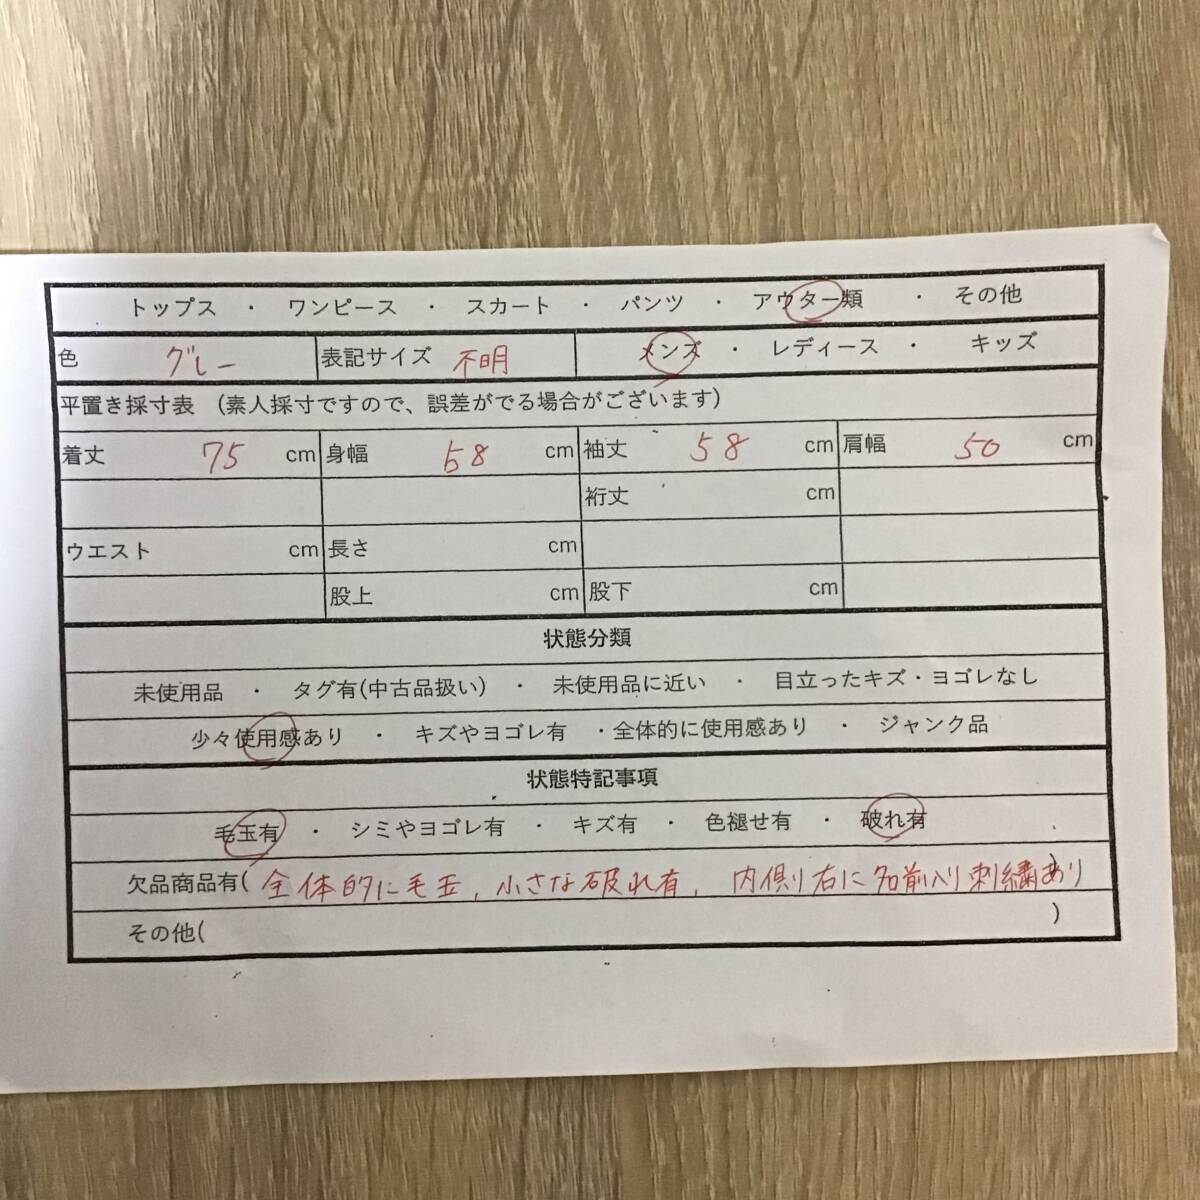 トップス ・ ワンピース ・ スカート ・ パンツ ・ アウター類 ・ その他
色 グレー 表記サイズ 不明 メンズ ・ レディース ・ キッズ
平置き採寸表 (素人採寸ですので、誤差がでる場合がございます)
着丈 75 cm 身幅 58 cm 袖丈 58 cm 肩幅 50 cm
裄丈 cm
ウエスト cm 長さ cm
股上 cm 股下 cm
状態分類
未使用品 ・ タグ有(中古品扱い) ・ 未使用品に近い ・ 目立ったキズ・ヨゴレなし
少々使用感あり ・ キズやヨゴレ有 ・全体的に使用感あり ・ ジャンク品
状態特記事項
毛玉有 ・ シミやヨゴレ有 ・ キズ有 ・ 色褪せ有 ・ 破れ有
欠品商品有( 全体的に毛玉, 小さな破れ有, 内側右に名前入り刺繍あり )
その他( )